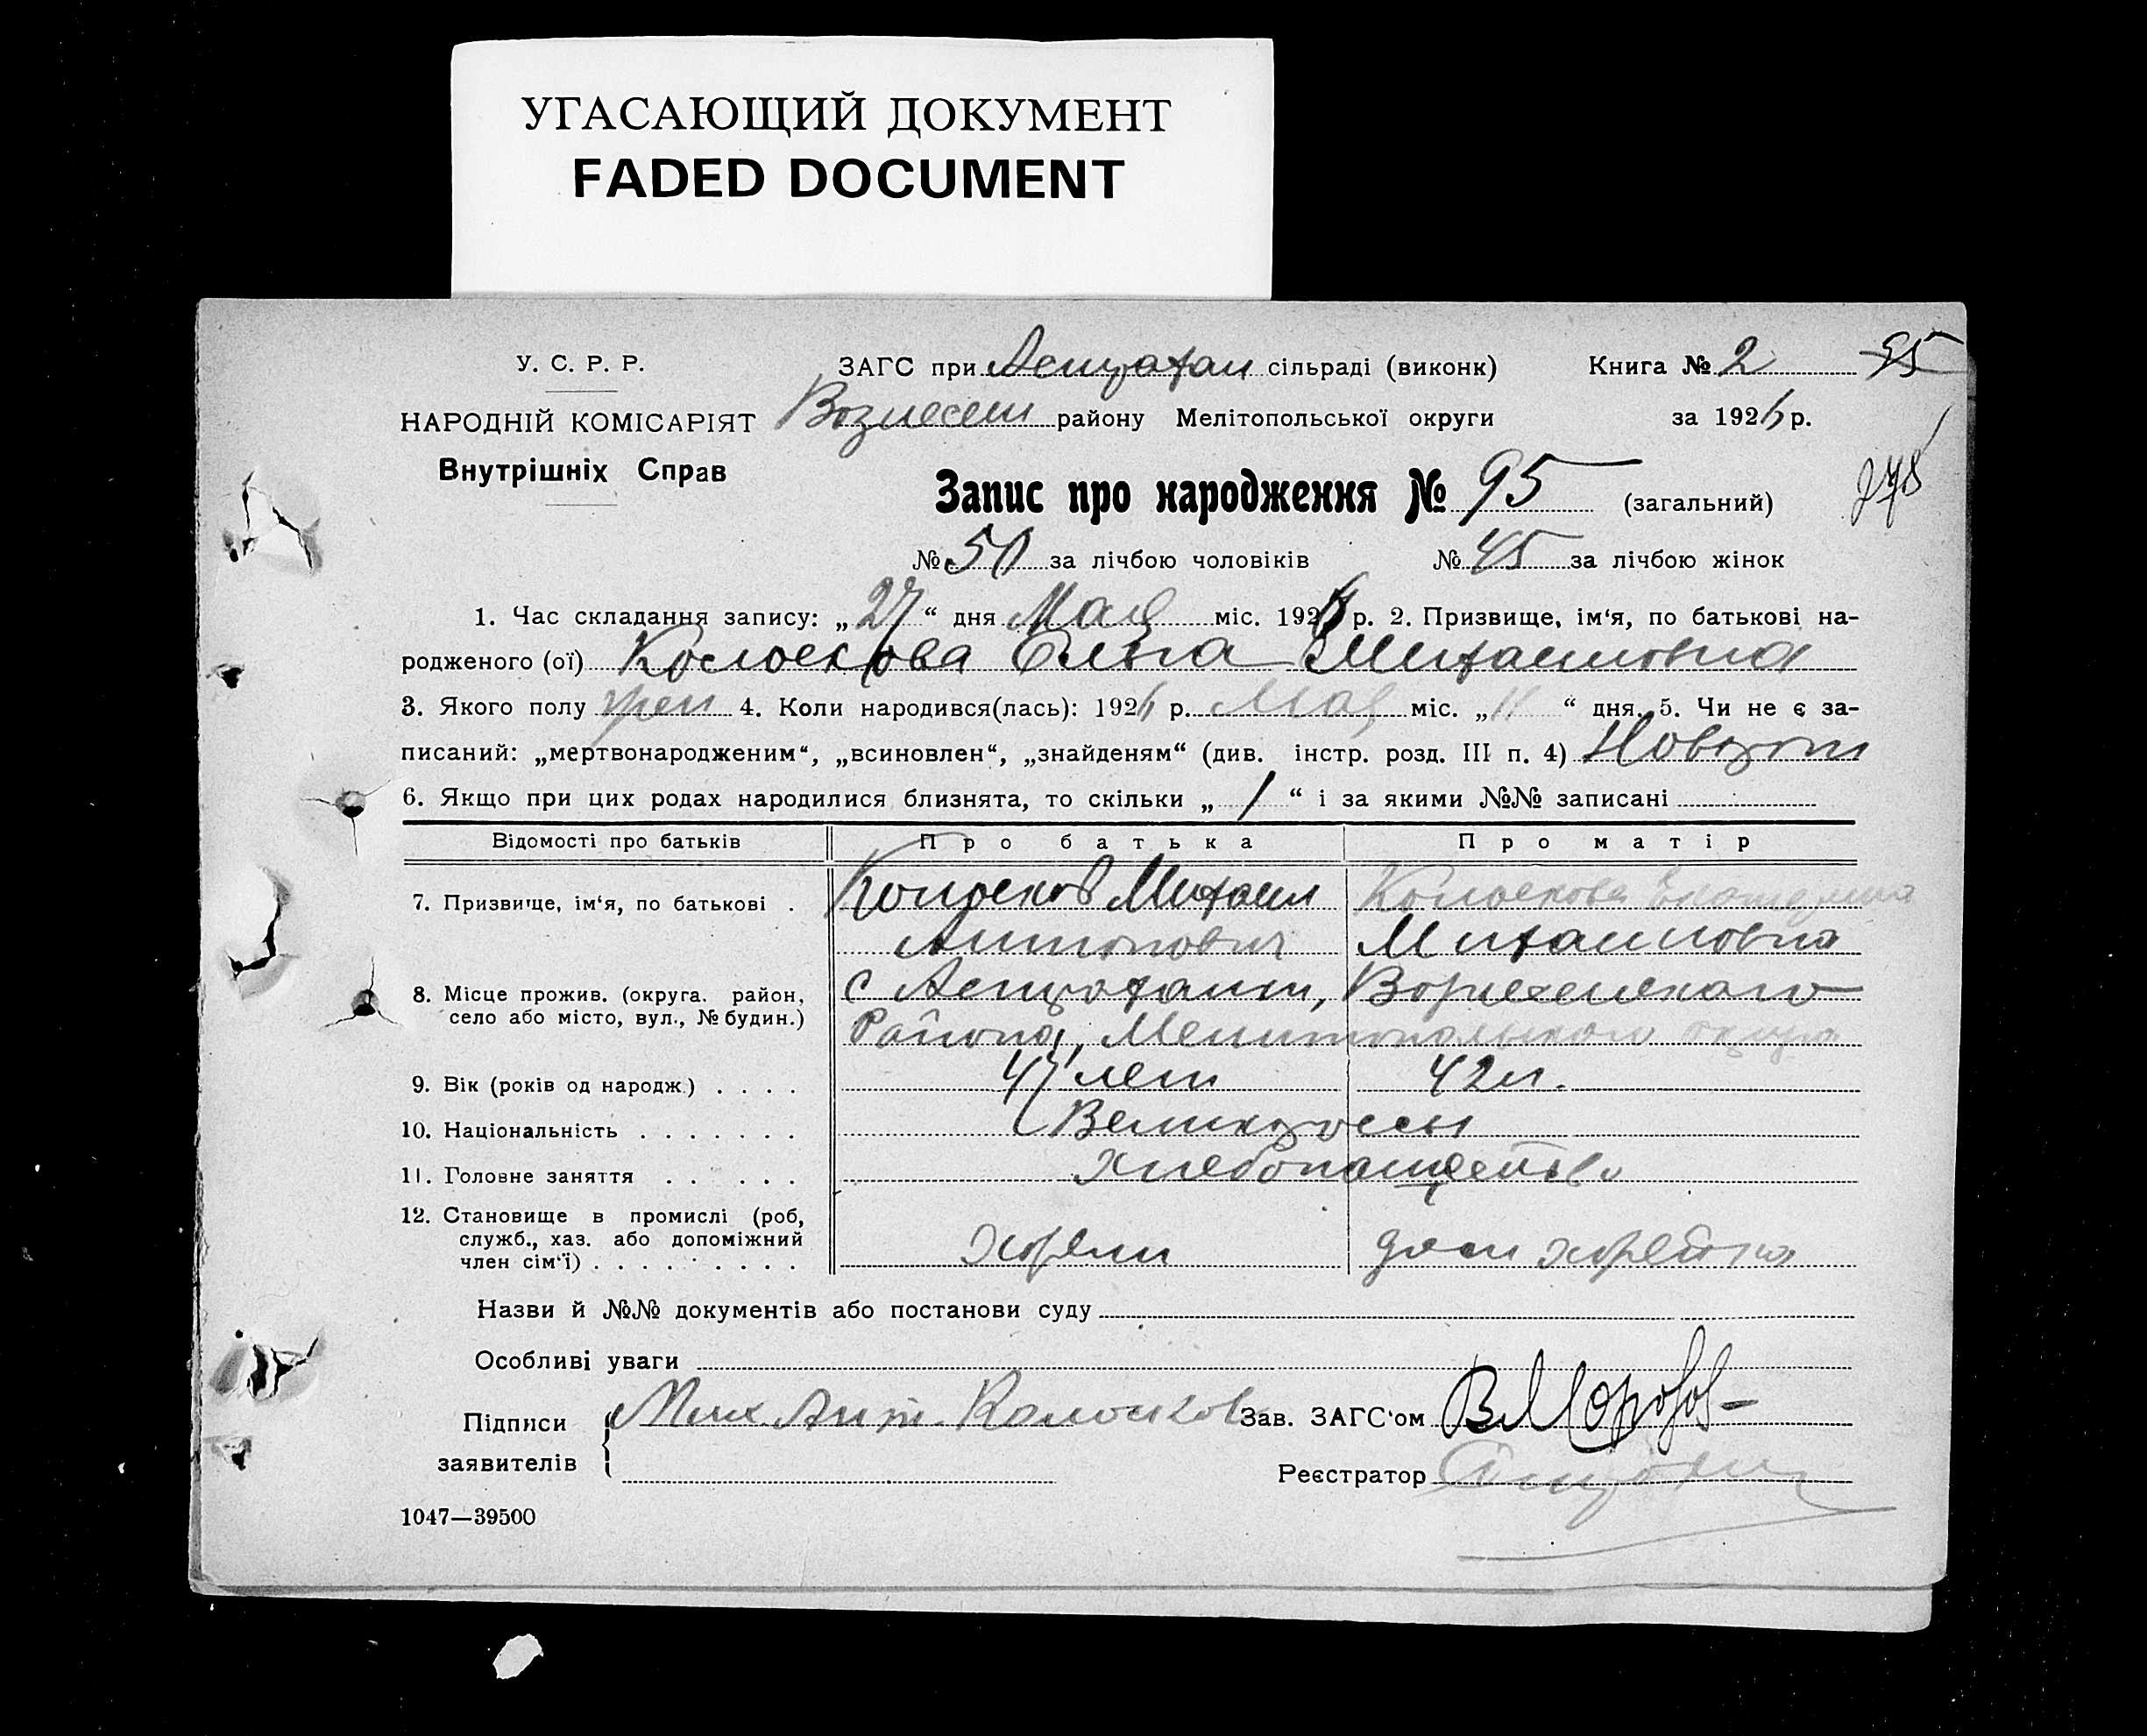 УГАСАЮЩИЙ ДОКУМЕНТ
FADED DOCUMENT
У. С. Р. Р.
ЗАГС при Астрахан сільраді (виконк)
Книга № 2
95
НАРОДНІЙ КОМІСАРІЯТ
Вознесен району Мелітопольської округи
за 1926 р.
Внутрішніх Справ
Запис про народження № 95 (загальний)
278
№ 50 за лічбою чоловіків № 45 за лічбою жінок
1. Час складання запису: „27“ дня Мая міс. 1926 р. 2. Призвище, ім‘я, по батькові на-
родженого (ої) Колоскова Ольга Михаиловна
3. Якого полу жен 4. Коли народився(лась): 1926 р. Мая міс. „11“ дня. 5. Чи не є за-
писаний: „мертвонародженим“, „всиновлен“, „знайденям“ (див. інстр. розд. III п. 4)
6. Якщо при цих родах народилися близнята, то скільки „1“ і за якими №№ записані
Відомості про батьків Про батька Про матір
7. Призвище, ім‘я, по батькові . Колосков Михаил Колоскова Екатерина
Антонович Михаиловна
8. Місце прожив. (округа. район, село або місто, вул., № будин.) с Астраханка, Вознесенскаго
Района, Мелитопольского округа
9. Вік (років од народж.) . . . . 47 лет 42 л.
10. Національність . . . . . . . Великороссы
11. Головне заняття . . . . . . Хлебопашество
12. Становище в промислі (роб,
служб., хаз. або допоміжний
член сім‘ї) . . . . . . . . . Хозяин дом хозяйка
Назви й №№ документів або постанови суду
Особливі уваги
Підписи заявителів Мих. Ант. Колосков
Зав. ЗАГС‘ом В Морозов
Реєстратор
1047—39500